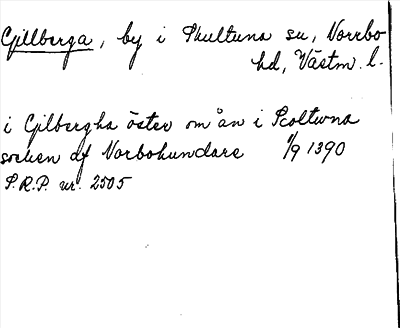 Gillberga, by i Skultuna sn, Norrbo
hd, Västm. l.
i Gilbergha öster om ån i Scoltwna
socken af Norbohundare 11/9 1390
S.R.P. nr. 2505